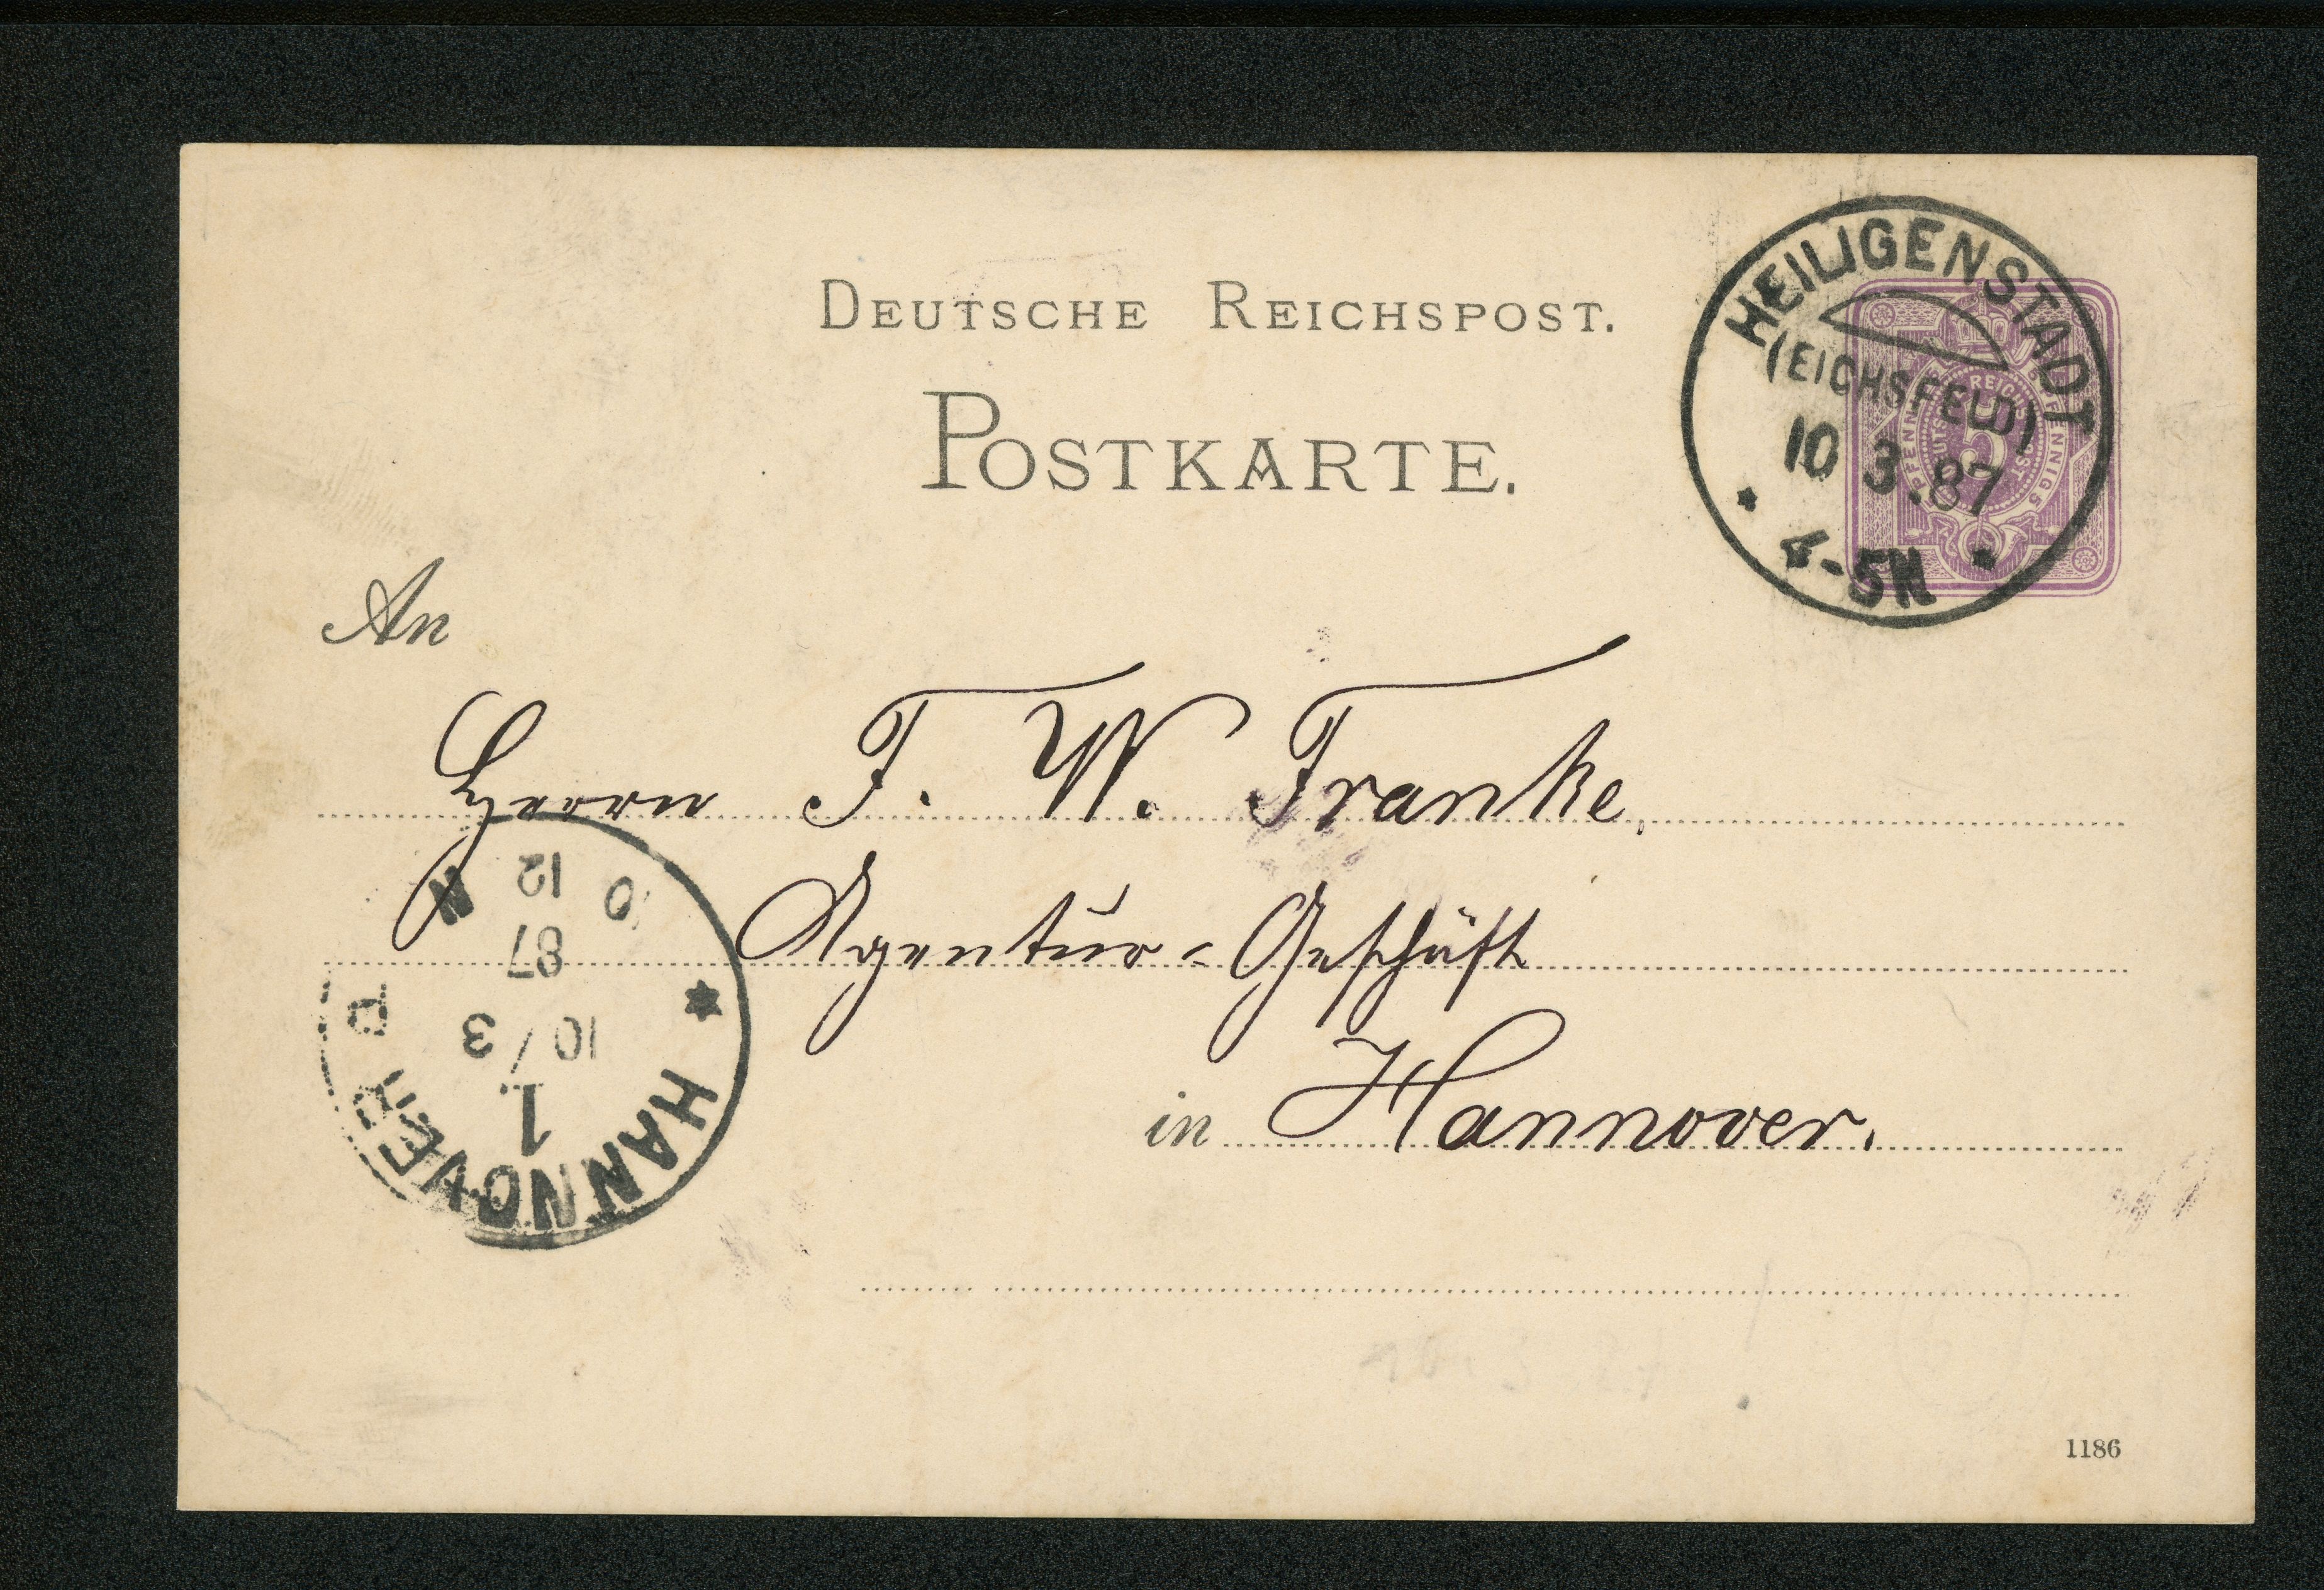 DEUTSCHE REICHSPOST.
POSTKARTE.
HEILIGENSTADT
(EICHSFELD)
10 3.87
4-5N
5
An
Herrn F. W. Franke,
Agentur-Geschäft
in Hannover.
HANNOVER
1.
10/3
87
12
N
1186